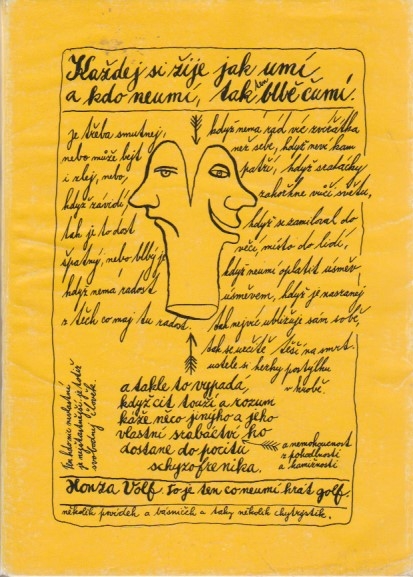 Každej si žije jak umí
a kdo neumí, tak blbě čumí.
Je třeba smutnej,
nebo může bejt
i zlej, nebo,
když závidí,
tak je to dost
špatný, nebo blbý je
když nemá radost
z těch co maj tu radost.
když nemá rád víc zvířátka
než sebe, když neví kam
patří, když sraláčky
zahořkne vůči světu,
když se zamiloval do
věcí, místo do lidí,
když neumí oplatit úsměv
úsměvem, když je nasranej
tak nejvíc ubližuje sám sobě,
tak se určitě těší na smrt.
ustele si hezky postýlku
v hrobě.
a takle to vypadá,
když cit touží a rozum
káže něco jinýho a jeho
vlastní srabáctví ho
dostane do pocitu
schyzofrenika.
a nemohoucnost
z pohodlnosti
a
Ten kdo nic nevlastní
je nejšťastnější, je totiž
svobodný člověk.
Honza Volf. To je ten co neumí hrát golf.
několik povídek a básniček a taky několik chytrystik.